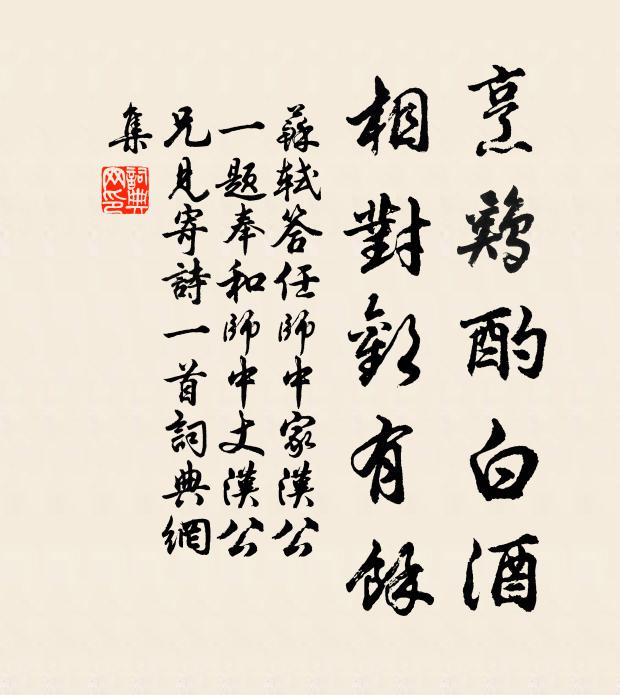 烹鷄酌白酒
相對歡有餘
蘇軾答任師中家漢公
一題奉和師中丈漢公
兄見寄詩一首詞典網
集
詞典網印